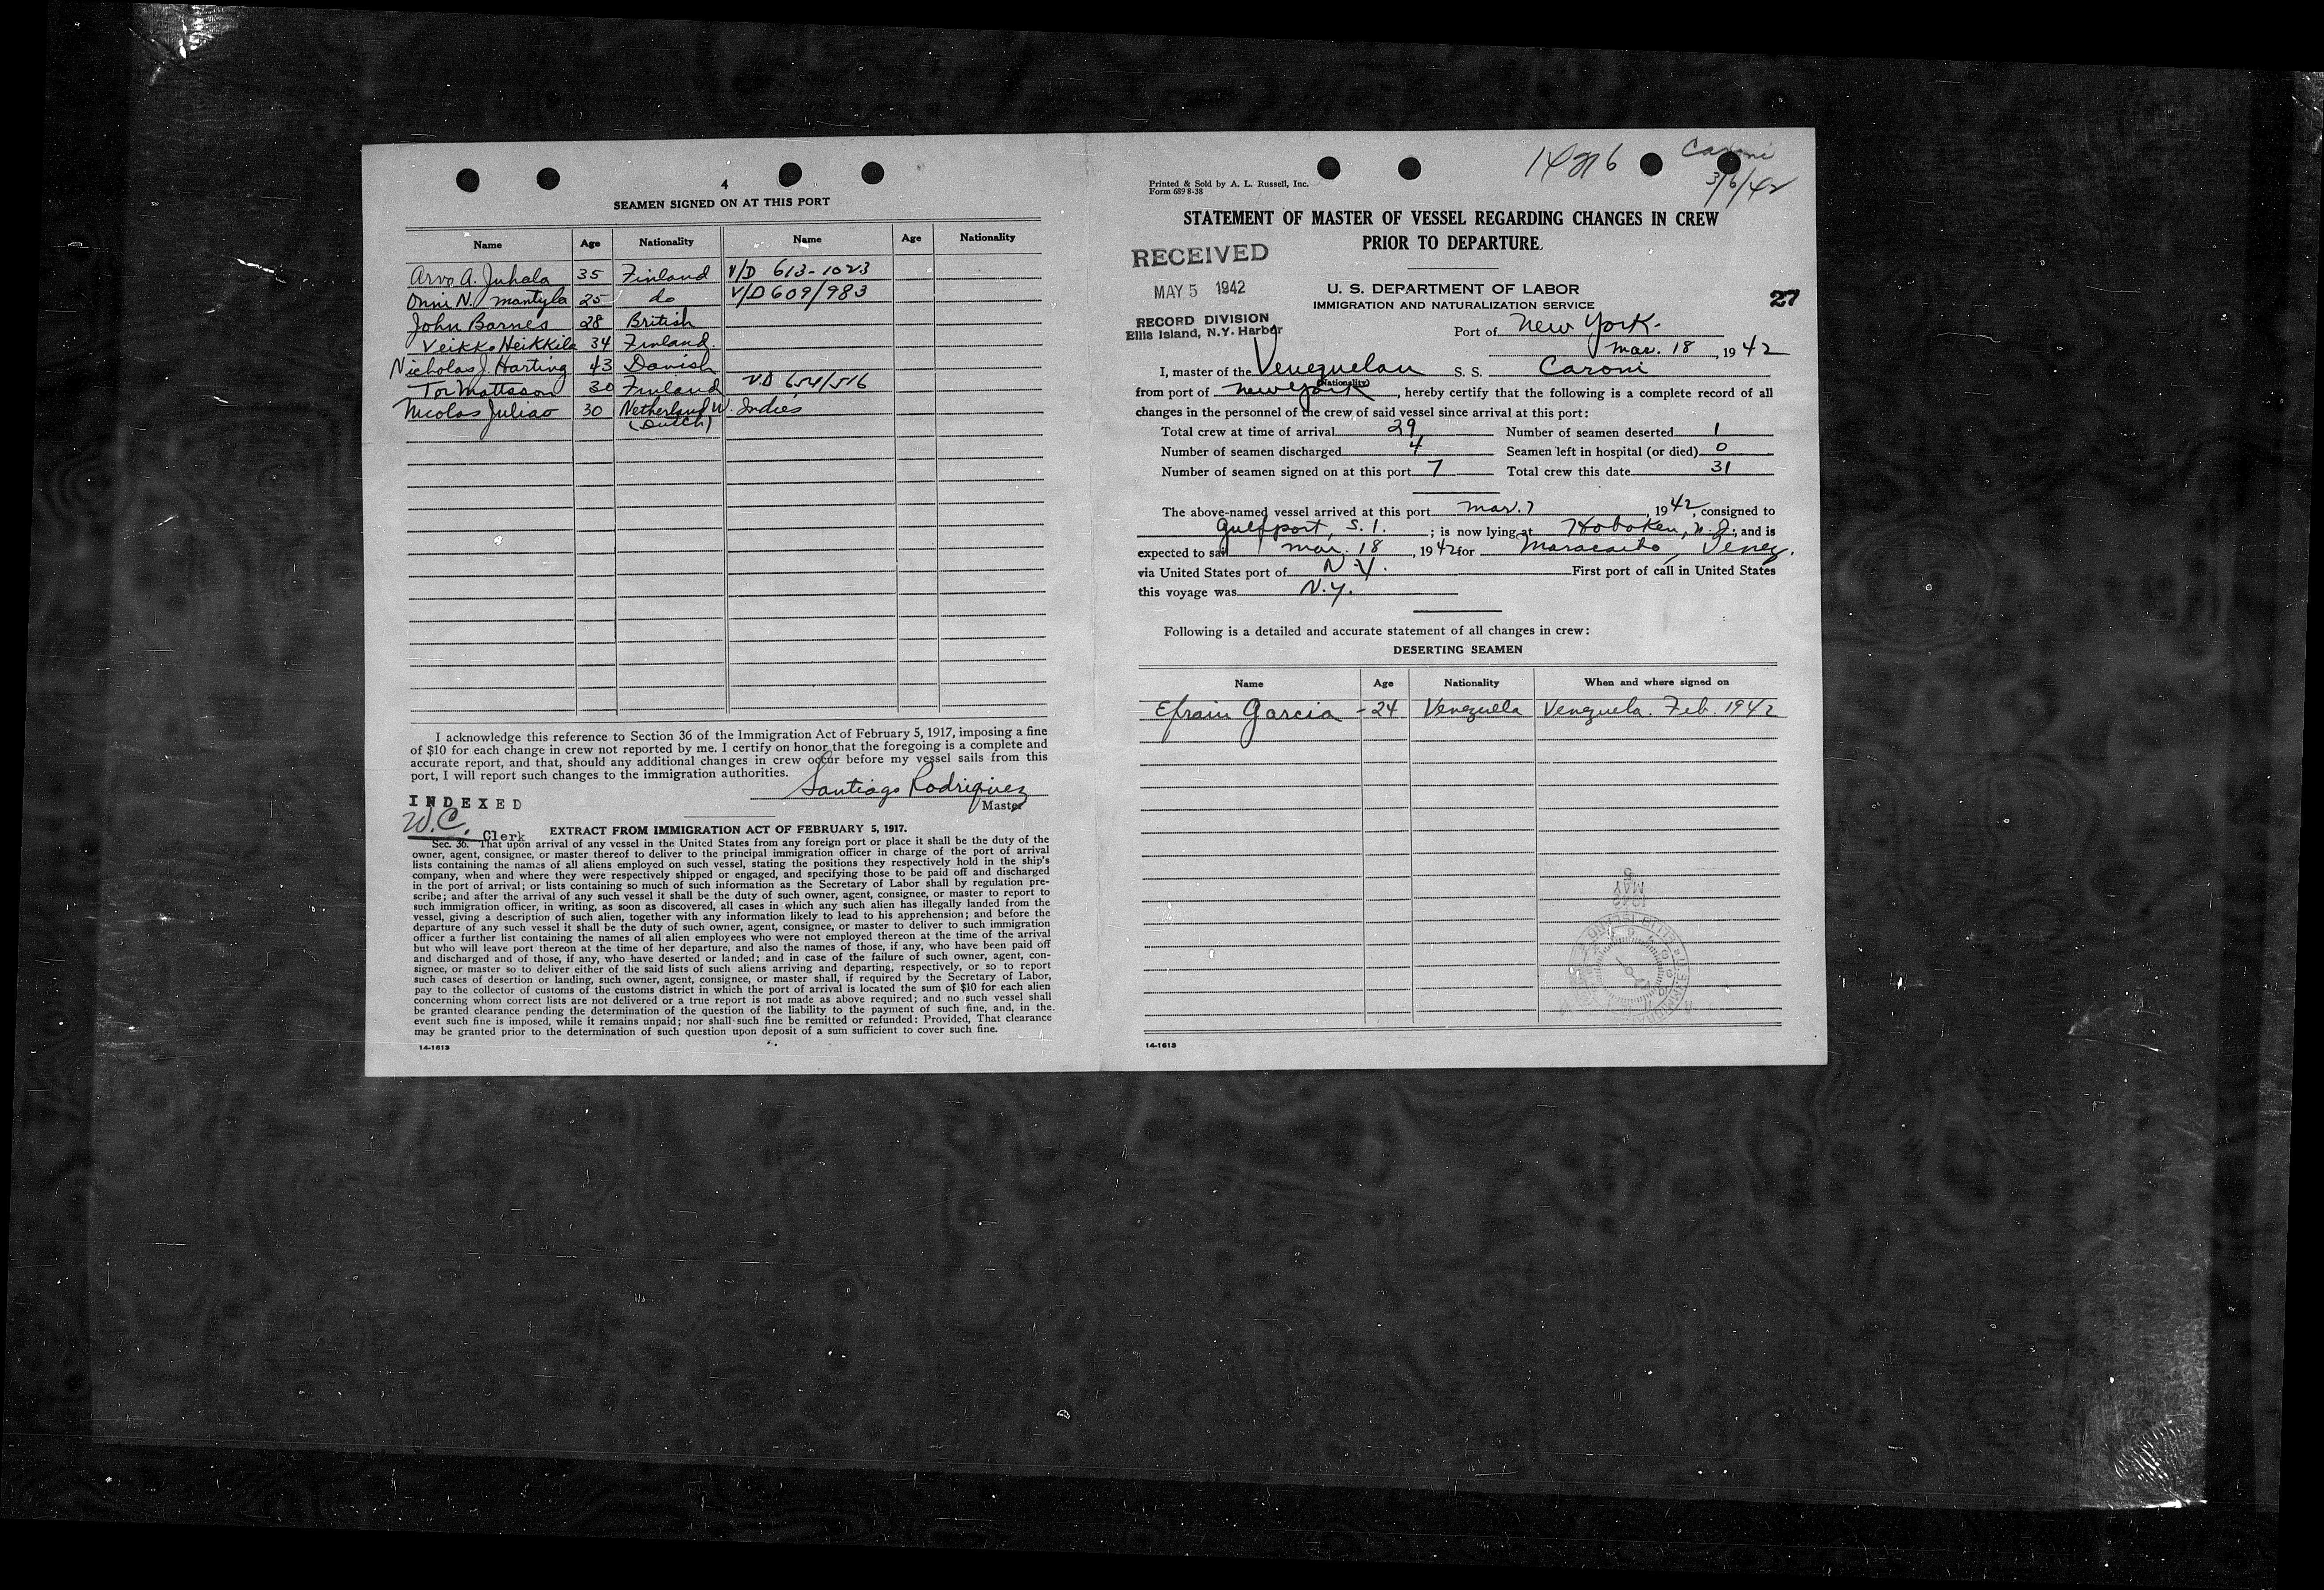 4
SEAMEN SIGNED ON AT THIS PORT
Name Age Nationality Name Age Nationality
Arvo A. Juhala 35 Finland V/D 613-1023
Onni N. Mantyla 25 do V/D 609/983
John Barnes 28 British
Veikko Heikkila 34 Finland.
Nicholas J. Harting 43 Danish
Tor Mattsson 30 Finland VD 654/516
Nicolas Juliao 30 Netherland W. Indies
(Dutch)
I acknowledge this reference to Section 36 of the Immigration Act of February 5, 1917, imposing a fine
of $10 for each change in crew not reported by me. I certify on honor that the foregoing is a complete and
accurate report, and that, should any additional changes in crew occur before my vessel sails from this
port, I will report such changes to the immigration authorities.
Santiago Rodriquez
Master
INDEXED
W.C. Clerk
EXTRACT FROM IMMIGRATION ACT OF FEBRUARY 5, 1917.
Sec. 36. That upon arrival of any vessel in the United States from any foreign port or place it shall be the duty of the
owner, agent, consignee, or master thereof to deliver to the principal immigration officer in charge of the port of arrival
lists containing the names of all aliens employed on such vessel, stating the positions they respectively hold in the ship's
company, when and where they were respectively shipped or engaged, and specifying those to be paid off and discharged
in the port of arrival; or lists containing so much of such information as the Secretary of Labor shall by regulation pre-
scribe; and after the arrival of any such vessel it shall be the duty of such owner, agent, consignee, or master to report to
such immigration officer, in writing, as soon as discovered, all cases in which any such alien has illegally landed from the
vessel, giving a description of such alien, together with any information likely to lead to his apprehension; and before the
departure of any such vessel it shall be the duty of such owner, agent, consignee, or master to deliver to such immigration
officer a further list containing the names of all alien employees who were not employed thereon at the time of the arrival
but who will leave port thereon at the time of her departure, and also the names of those, if any, who have been paid off
and discharged and of those, if any, who have deserted or landed; and in case of the failure of such owner, agent, con-
signee, or master so to deliver either of the said lists of such aliens arriving and departing, respectively, or so to report
such cases of desertion or landing, such owner, agent, consignee, or master shall, if required by the Secretary of Labor,
pay to the collector of customs of the customs district in which the port of arrival is located the sum of $10 for each alien
concerning whom correct lists are not delivered or a true report is not made as above required; and no such vessel shall
be granted clearance pending the determination of the question of the liability to the payment of such fine, and, in the
event such fine is imposed, while it remains unpaid; nor shall such fine be remitted or refunded: Provided, That clearance
may be granted prior to the determination of such question upon deposit of a sum sufficient to cover such fine.
14-1613
14276 Caroni
3/6/42
Printed & Sold by A. L. Russell, Inc.
Form 689 8-38
STATEMENT OF MASTER OF VESSEL REGARDING CHANGES IN CREW
PRIOR TO DEPARTURE
RECEIVED
MAY 5 1942
RECORD DIVISION
Ellis Island, N.Y. Harbor
U. S. DEPARTMENT OF LABOR
IMMIGRATION AND NATURALIZATION SERVICE
27
Port of New York.
Mar. 18, 1942
I, master of the Venezuelan S. S. Caroni
(Nationality)
from port of New York, hereby certify that the following is a complete record of all
changes in the personnel of the crew of said vessel since arrival at this port:
Total crew at time of arrival 29 Number of seamen deserted 1
Number of seamen discharged 4 Seamen left in hospital (or died) 0
Number of seamen signed on at this port 7 Total crew this date 31
The above-named vessel arrived at this port Mar. 7, 1942, consigned to
Gulfport, S. I.; is now lying at Hoboken, N. J.; and is
expected to sail Mar. 18, 1942 for Maracaibo, Venez.
via United States port of N. Y. First port of call in United States
this voyage was N. Y.
Following is a detailed and accurate statement of all changes in crew:
DESERTING SEAMEN
Name Age Nationality When and where signed on
Efrain Garcia - 24 Venezuella Venezuela. Feb. 1942
1942
MAY
5
14-1613